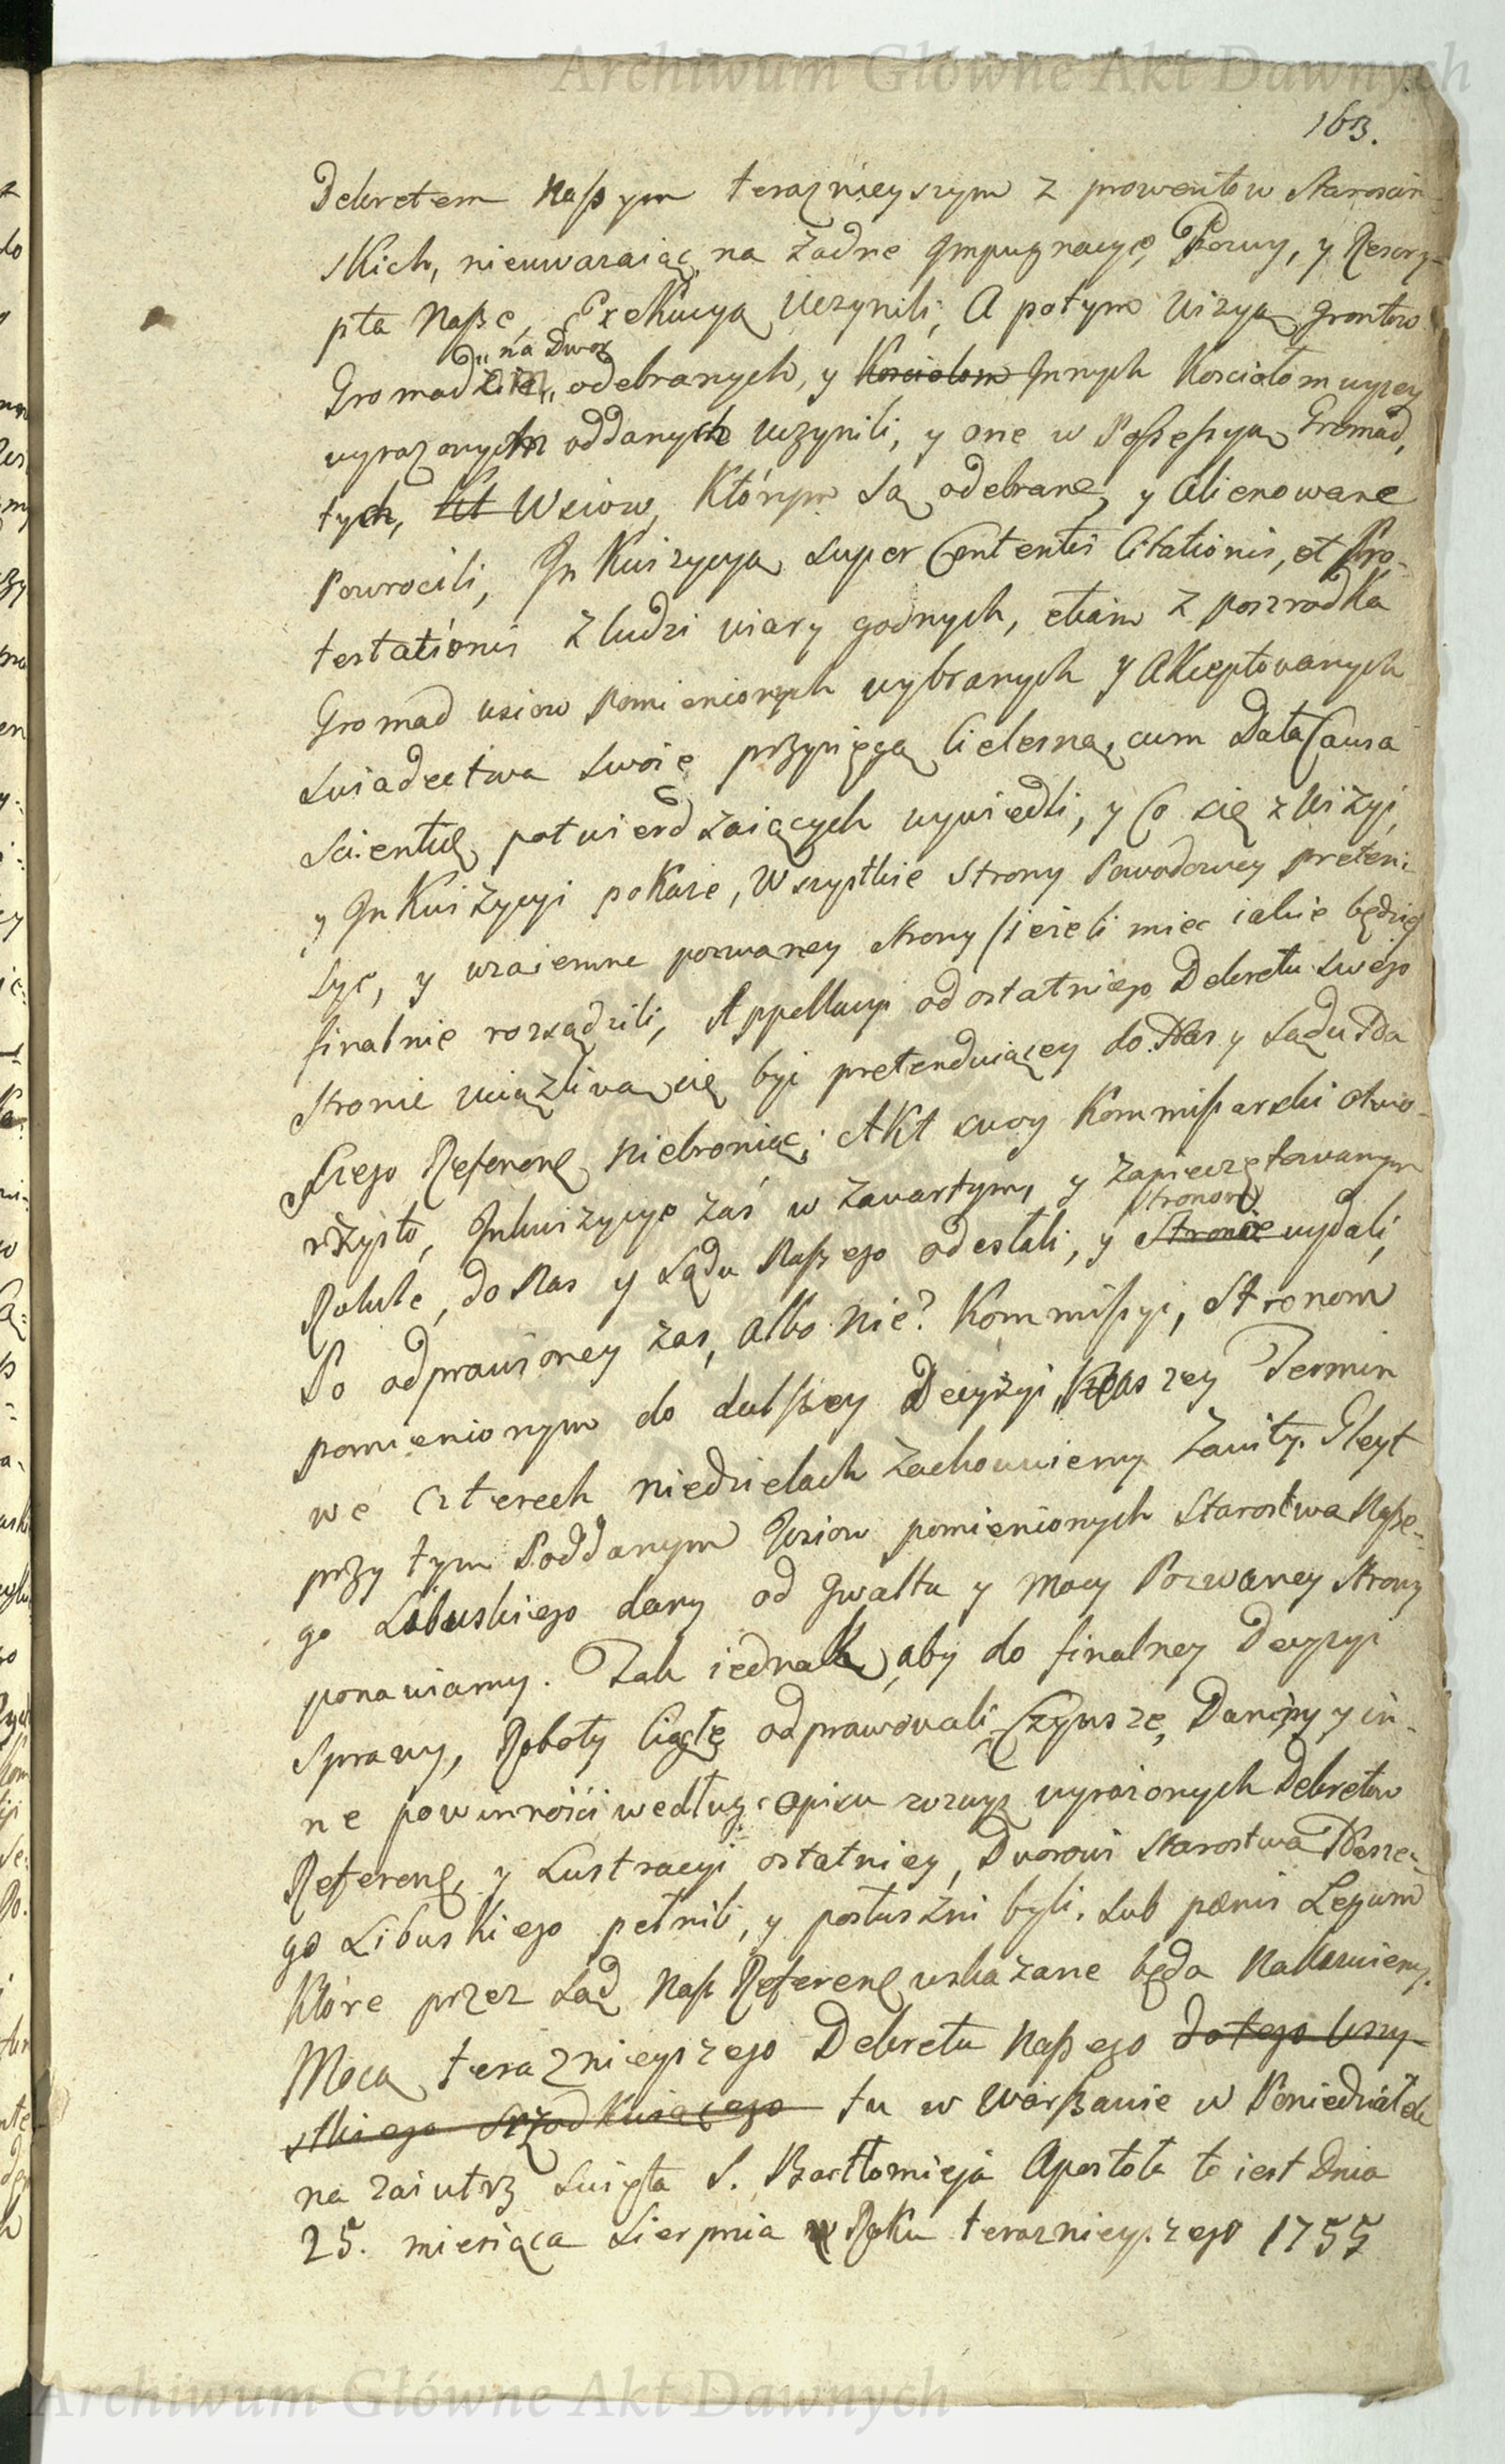 163.
Dekretem Naszym teraznieyszym z prowentow Staroscin-
skich, nieuwazaiąc na żadne Jmpugnacye, Pozwy, y Reskry-
pta Nasze, Exekucyą uczynili, A potym Wizyą grontow
„na Dwor
Gromadzie„ odebranych, y Kosciolom Jnnych Kosciołom wyzey
wyrazonych oddanych uczynili, y one w Possessyą Gromad,
tych, Wsiow, Którym są odebrane, y Alienowane
Powrocili, JnKwizycyą super Contentis Citationis, et Pro-
testationis z ludzi wiary godnych, etiam z poszrodka
Gromad wsiow pomienionych wybranych y Akceptowanych
swiadectwa swoie przysięgą Cielesną, cum Data Causa
Scientię, potwierdzaiących wywiedli, y Co się z Wizyi,
y JnKwizycyi pokaze, Wszystkie Strony Powodowey preten-
sye, y wzaiemne pozwaney strony /ieżeli miec iakie będzie/
finalnie rozsądzili, Appellacyi od ostatniego Dekretu swego
Stronie uciązliwą się byc pretenduiącey do Nas y Sądu Na
szego Referenę niebroniąc; Akt swoy Kommissarski otwo-
rzysto, Jnkwizycye zaś w zawartym, y zapieczętowanym
Stronom
Rotule, do Nas y Sądu Naszego odesłali, y Stronie wydali,
Po odprawioney zas, albo nie? Kommissyi, Stronom
pomienionym do dalszey Decyzyi Naszey Termin
we czterech niedzielach zachowuiemy zawity. Gleyt
przy tym Poddanym Wsiow pomienionych Starostwa Nasze-
go Libuskiego dany od gwałtu y mocy Pozwaney strony
ponawiamy. Tak iednak, aby do finalney Decyzyi
Sprawy, Roboty Ciągłe odprawowali, Czynsze, Daniny y in-
ne powinności według opisu zwysz wyrażonych Dekretow
Referenę, y Lustracyi ostatniey, Dworowi Starostwa Nasze-
go Libuskiego pełnili, y posłuszni byli, sub pœnis Legum
Które przez Sąd Nasz Referenę wskazane będą nakazuiemy.
Mocą teraznieyszego Dekretu Naszego do tego wszy-
stkiego tu w Warszawie w Poniedziałek
na zaiutrz Swięta S. Bartłomieja Apostoła to iest Dnia
25. miesiąca Sierpnia Roku teraznieyszego 1755
Archiwum Główne Akt Dawnych
Archiwum Główne Akt Dawnych